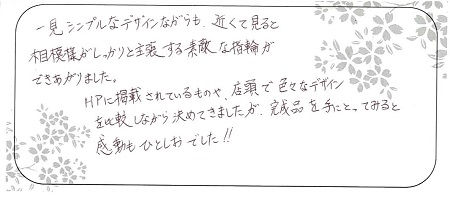 一見シンプルなデザインながらも、近くで見ると
相模様がしっかりと主張する素敵な指輪が
できあがりました。
HPに掲載されているものや、店頭で色々なデザイン
を比較しながら決めてきましたが、完成品を手にとってみると
感動もひとしおでした!!